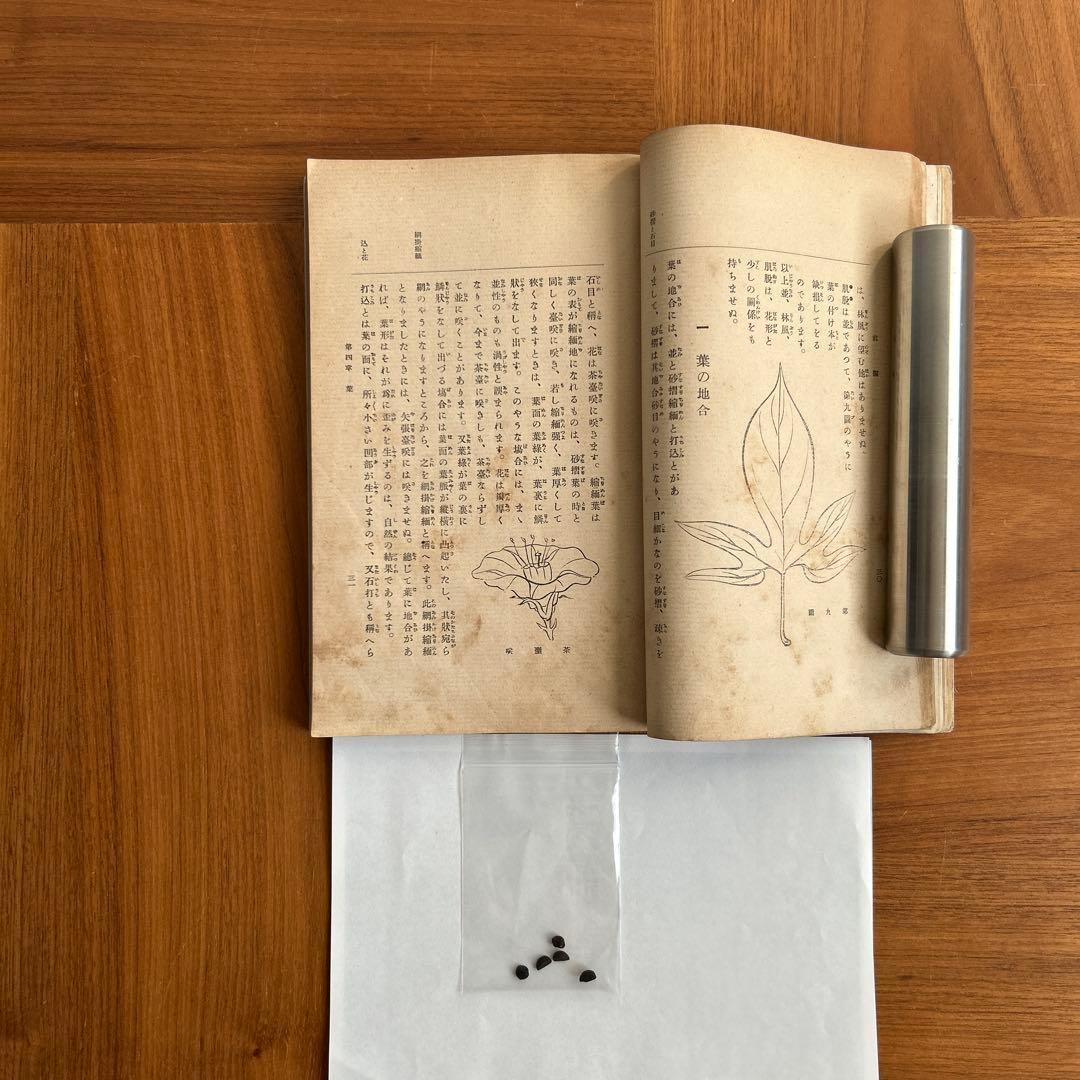 は、林風に望む他はありませぬ、
肌脱は並であつて、第九圖のやうに
葉の付け本が
缺損してをる
のであります。
以上並、林風、
肌脱は、花形と
少しの關係をも
持ちませぬ。
一 葉の地合
葉の地合には、並と砂摺縮緬と打込とがあ
りまして、砂摺は其地合砂目のやうになり、目細かなのを砂摺、疎きを
第九圖
三〇
砂摺と石目
石目と稱へ、花は茶臺咲に咲きます。縮緬葉は
葉の表が縮緬地になれるものは、砂摺葉の時と
同しく臺咲に咲き、若し縮緬強く、葉厚くして
狹くなりますときは、葉面の葉緣が、葉裏に鱗
狀をなして出ます。このやうな塲合には、まゝ
並性のものも渦性と誤まられます。花は瓣厚く
なりて、今まで茶臺に咲きしも、茶臺ならずし
て並に咲くことがあります。又葉緣が葉の裏に
鱗狀をなして出づる塲合には葉面の葉脈が縱橫に凸起いたし、其狀宛ら
網のやうになりますところから、之を網掛縮緬と稱へます。此網掛縮緬
となりましたときには、矢張臺咲には咲きませぬ。總じて葉に地合があ
れば、葉形はそれが爲に歪みを生ずるのは、自然の結果であります。
打込とは葉の面に、所々小さい凹部が生じますので、又石打とも稱へら
茶臺咲
網掛縮緬
込と花
第四章 葉
三一